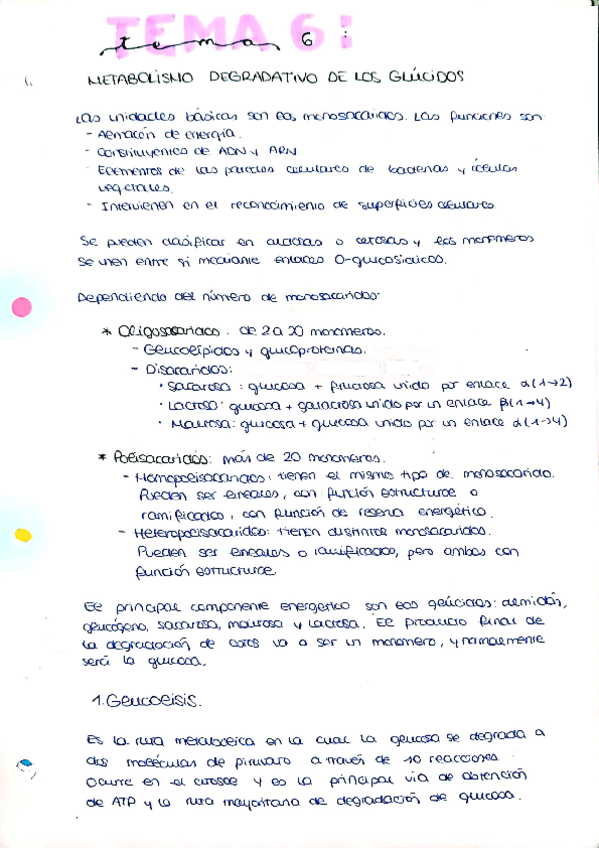 TEMA 6:
tema 6
METABOLISMO DEGRADATIVO DE LOS GLÚCIDOS
Las unidades básicas son los monosacáridos. Las funciones son:
- Almacén de energía.
- Constituyentes de ADN y ARN
- Elementos de las paredes celulares de bacterias y células
vegetales.
- Intervienen en el reconocimiento de superficies celulares.
Se pueden clasificar en aldosas o cetosas y los monómeros
se unen entre sí mediante enlaces O-glucosídicos.
Dependiendo del número de monosacáridos:
* Oligosacáridos: de 2 a 20 monómeros.
- Glucolípidos y glucoproteínas.
- Disacáridos:
· Sacarosa: glucosa + fructosa unido por enlace α(1→2)
· Lactosa: glucosa + galactosa unido por un enlace β(1→4)
· Maltosa: glucosa + glucosa unido por un enlace α(1→4)
* Polisacáridos: más de 20 monómeros.
- Homopolisacáridos: tienen el mismo tipo de monosacárido.
Pueden ser lineales, con función estructural o
ramificados, con función de reserva energética.
- Heteropolisacáridos: tienen distintos monosacáridos.
Pueden ser lineales o ramificados, pero ambos con
función estructural
El principal componente energético son los glúcidos: almidón,
glucógeno, sacarosa, maltosa y lactosa. El producto final de
la degradación de estos va a ser un monómero, y normalmente
será la glucosa.
1. Glucólisis.
Es la ruta metabólica en la cual la glucosa se degrada a
dos moléculas de piruvato a través de 10 reacciones.
Ocurre en el citosol y es la principal vía de obtención
de ATP y la ruta mayoritaria de degradación de glucosa.